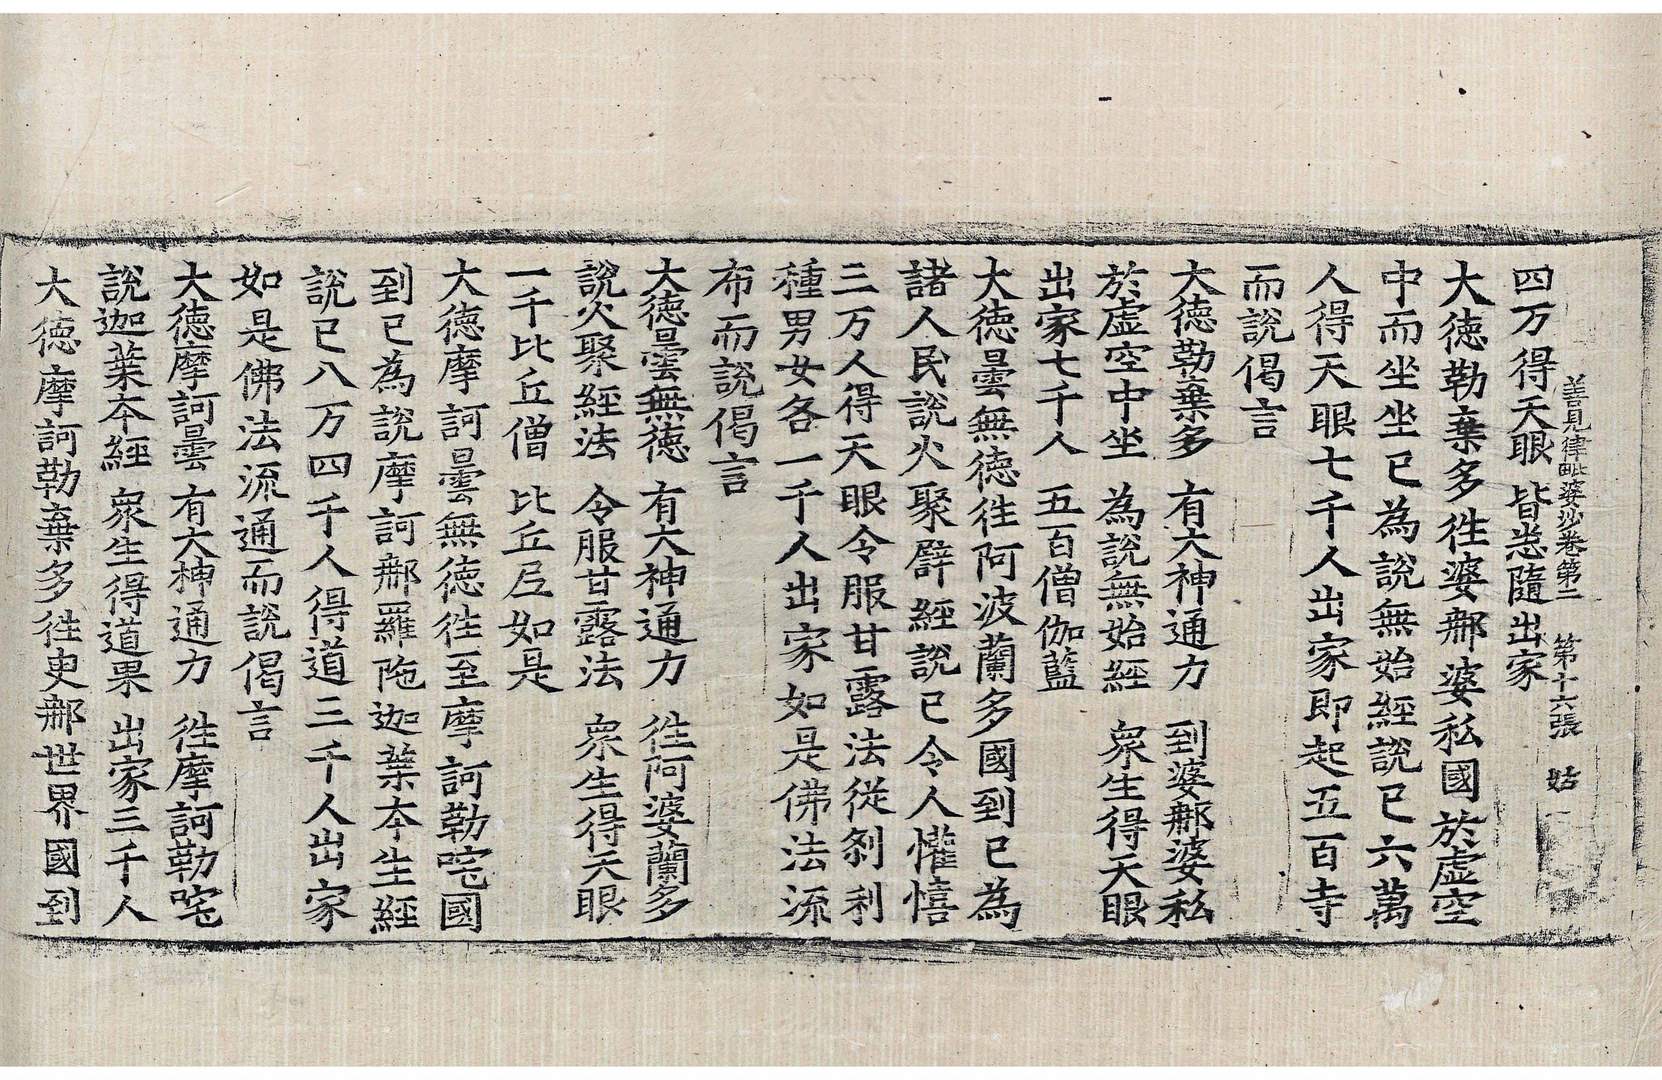 善見律毗婆沙卷第二　第十六張　姑
四万得天眼　皆悉隨出家
大德勒棄多徃婆𨚗婆私國於虛空
中而坐坐已為說無始經說已六萬
人得天眼七千人出家即起五百寺
而說偈言
大德勒棄多　有大神通力　到婆𨚗婆私
於虛空中坐　為說無始經　衆生得天眼
出家七千人　五百僧伽藍
大德曇無德徃阿波蘭多國到已為
諸人民說火聚譬經說已令人懽憘
三万人得天眼令服甘露法從剎利
種男女各一千人出家如是佛法流
布而說偈言
大德曇無德　有大神通力　徃阿婆蘭多
說火聚經法　令服甘露法　衆生得天眼
一千比丘僧　比丘尼如是
大德摩訶曇無德徃至摩訶勒咤國
到已為說摩訶𨚗羅陁迦葉夲生經
說已八万四千人得道三千人出家
如是佛法流通而說偈言
大德摩訶曇　有大神通力　徃摩訶勒咤
說迦葉夲經　衆生得道果　出家三千人
大德摩訶勒棄多徃臾𨚗世界國到